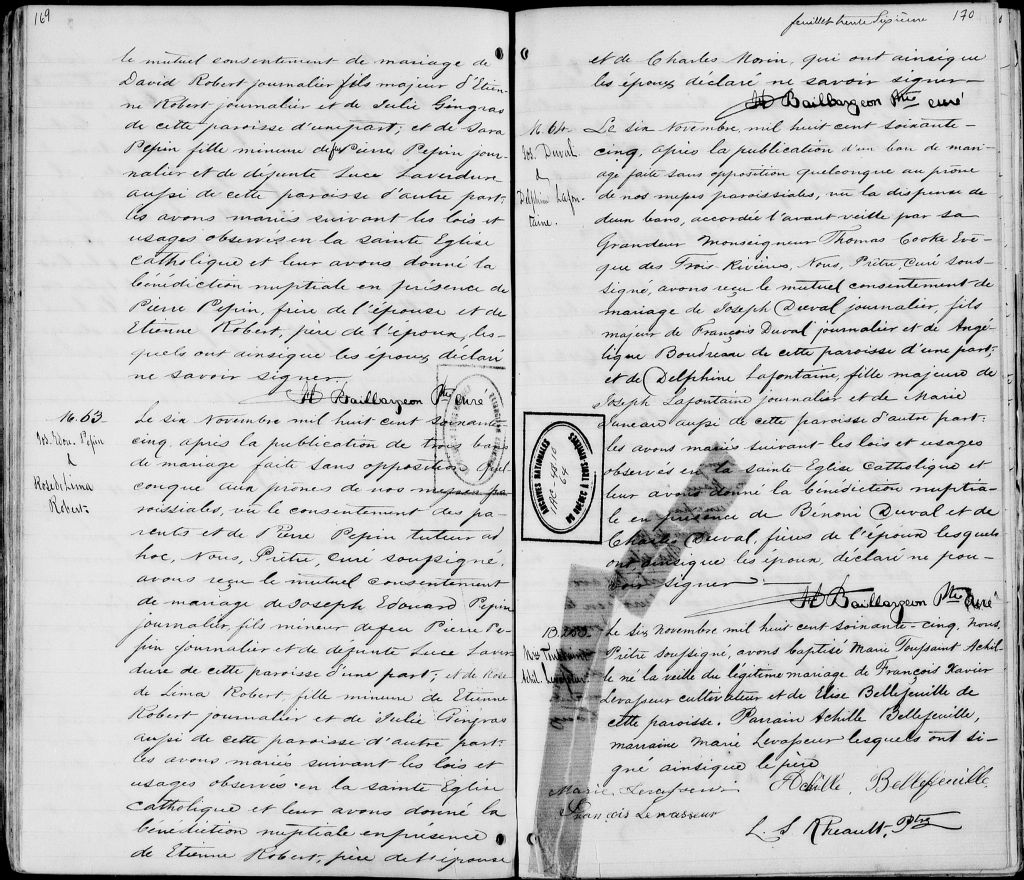 169
le mutuel consentement de mariage de
David Robert journalier fils majeur d'Etien-
ne Robert journalier et de Julie Gingras
de cette paroisse d'une part; et de Sara
Pepin fille mineure de feu Pierre Pepin jour-
nalier et de défunte Luce Laverdure
aussi de cette paroisse d'autre part:
les avons mariés suivant les lois et
usages observés en la sainte Eglise
catholique et leur avons donné la
bénédiction nuptiale en présence de
Pierre Pepin, frère de l'épouse et de
Etienne Robert, père de l'époux, les-
quels ont ainsique les époux déclaré
ne savoir signer.
Baillargeon Ptre curé
M. 63
Jos. Edou. Pepin
&
Rose de Lima
Robert
Le six Novembre mil huit cent soixante
cinq, après la publication de trois bans
de mariage faite sans opposition quel-
conque aux prônes de nos messes pa-
roissiales, vu le consentement des pa-
rents et de Pierre Pepin tuteur ad
hoc, Nous, Prêtre, curé soussigné,
avons reçu le mutuel consentement
de mariage de Joseph Edouard Pepin
journalier, fils mineur de feu Pierre Pe-
pin journalier et de défunte Luce Laver
dure de cette paroisse d'une part; et de Rose
de Lima Robert fille mineure de Etienne
Robert journalier et de Julie Gingras
aussi de cette paroisse d'autre part:
les avons mariés suivant les lois et
usages observés en la sainte Eglise
catholique et leur avons donné la
bénédiction nuptiale en présence
de Etienne Robert, père de l'épouse
feuillet trente sixième
170
et de Charles Morin, qui ont ainsique
les époux déclaré ne savoir signer.
Baillargeon Ptre curé
M. 64
Jos. Duval
&
Delphine Lafon-
taine.
Le six Novembre, mil huit cent soixante-
cinq, après la publication d'un ban de mari-
age faite sans opposition quelconque au prône
de nos messes paroissiales, vu la dispense de
deux bans, accordée l'avant veille par sa
Grandeur Monseigneur Thomas Cooke Evê-
que des Trois Rivières, Nous, Prêtre, Curé sous-
signé, avons reçu le mutuel consentement de
mariage de Joseph Duval journalier, fils
majeur de François Duval journalier et de Angé-
lique Boudreau de cette paroisse d'une part;
et de Delphine Lafontaine, fille majeure de
Joseph Lafontaine journalier et de Marie
aussi de cette paroisse d'autre part:
les avons mariés suivant les lois et usages
observés en la sainte Eglise Catholique et
leur avons donné la bénédiction nuptia-
le en présence de Bénoni Duval et de
Charles Duval, frères de l'époux lesquels
ont ainsique les époux, déclaré ne pou-
voir signer
Baillargeon Ptre Curé
ARCHIVES NATIONALES
DU QUÉBEC À TROIS-RIVIÈRES
Achil. Levasseur
Le six Novembre mil huit cent soixante-cinq, Nous,
Prêtre soussigné, avons baptisé Marie Toussaint Achil-
le né la veille du légitime mariage de François Xavier
Levasseur cultivateur et de Elise Bellefeuille de
cette paroisse. Parrain Achille Bellefeuille,
marraine Marie Levasseur lesquels ont si-
gné ainsique le père
Marie Levasseur
Achille Bellefeuille
François Levasseur
L. S. Rheault, Ptre